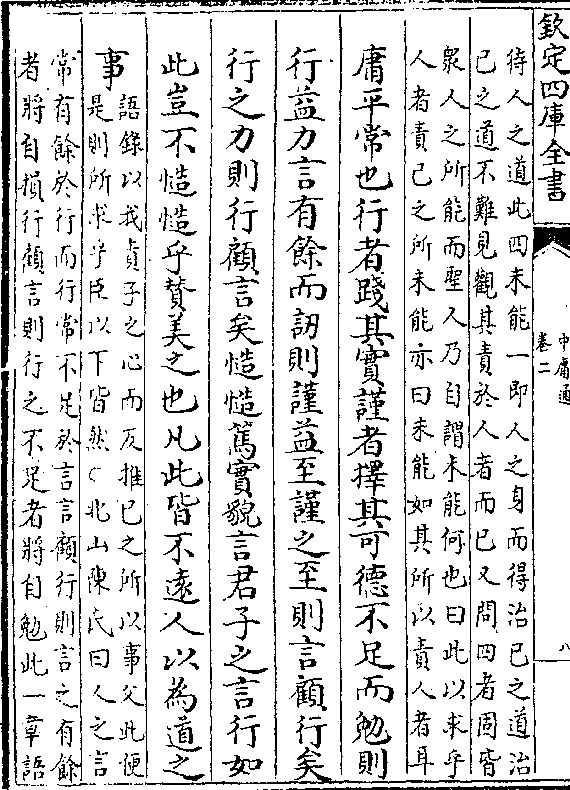 欽定四庫全書
中庸通
卷二
八
待人之道此四未能一即人之身而得治已之道治
已之道不難見觀其責於人者而已又問四者固皆
衆人之所能而聖人乃自謂未能何也曰此以求乎
人者責己之所未能亦曰未能如其所以責人者耳
庸平常也行者踐其實謹者擇其可德不足而勉則
行益力言有餘而訒則謹益至謹之至則言顧行矣
行之力則行顧言矣慥慥篤實貌言君子之言行如
此豈不慥慥乎贊美之也凡此皆不遠人以為道之
事
語録以我責子之心而反推已之所以事父此便
是則所求乎臣以下皆然北山陳氏曰人之言
常有餘於行而行常不足於言言顧行則言之有餘
者將自損行顧言則行之不足者將自勉此一章語